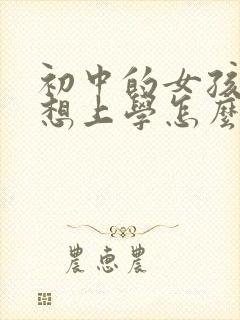 初中的女孩
想上學怎麼
農惠農